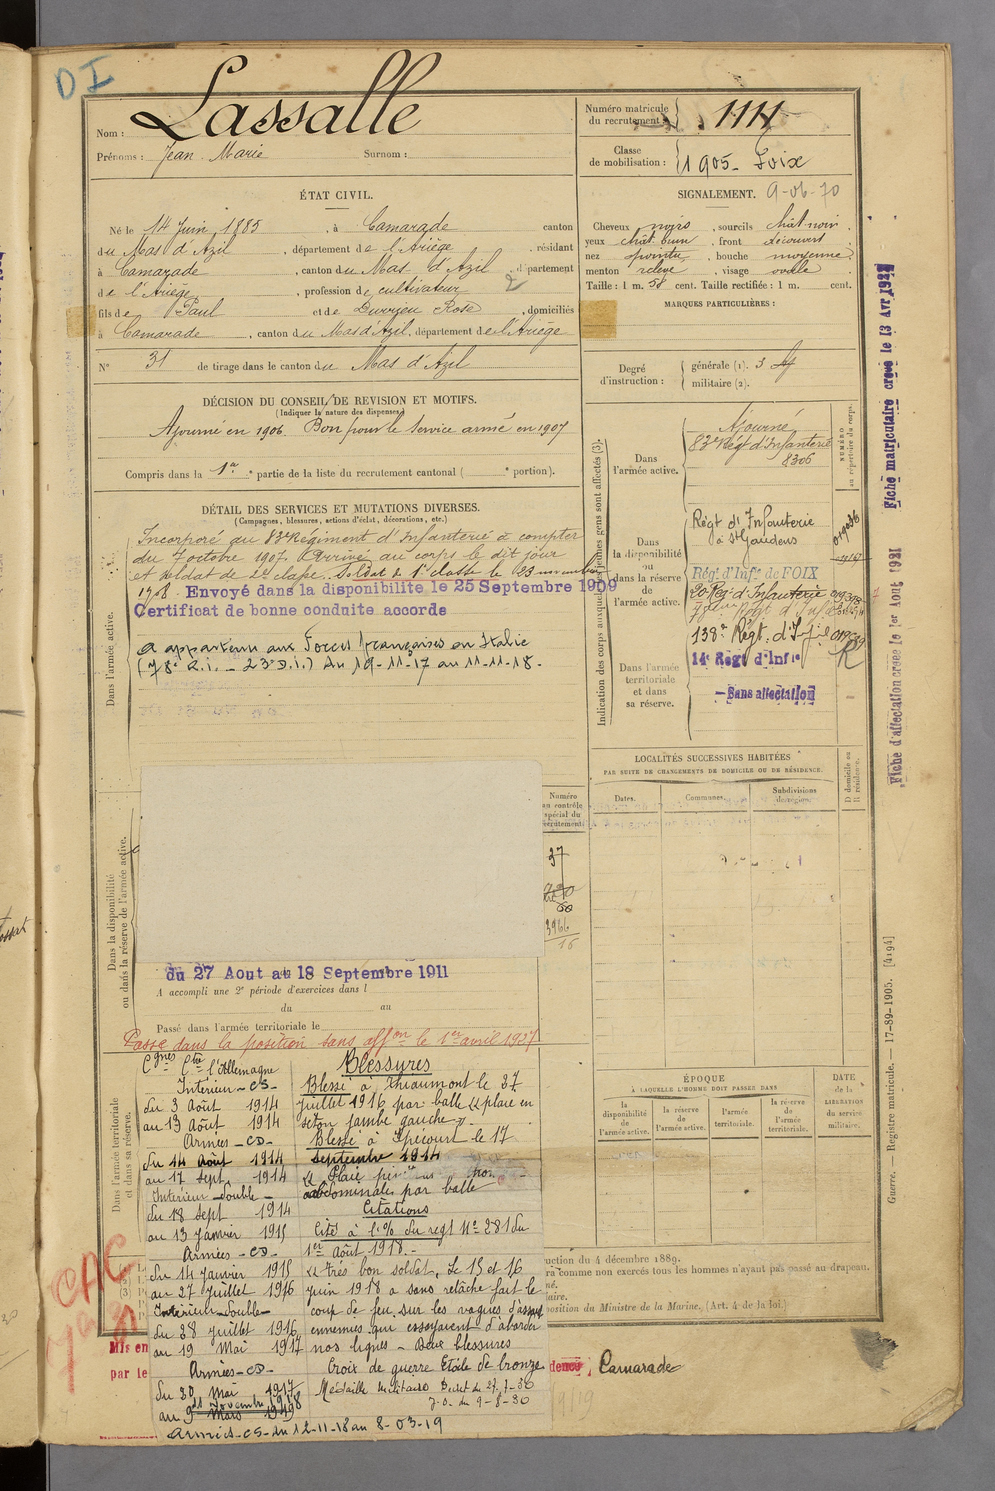 DI
Nom : Lassalle
Prénoms : Jean Marie Surnom :
Numéro matricule du recrutement : 1111
Classe de mobilisation : 1905 - Foix
ÉTAT CIVIL.
Né le 14 Juin 1885, à Camarade canton
du Mas d'Azil, département de l'Ariège, résidant
à Camarade, canton du Mas d'Azil, département
de l'Ariège, profession de cultivateur
fils de Paul et de Durrieu Rose, domiciliés
à Camarade, canton du Mas d'Azil, département de l'Ariège
N° 31 de tirage dans le canton du Mas d'Azil
SIGNALEMENT. 9-06-70
Cheveux noirs, sourcils chât noir.
yeux chât. brun, front découvert
nez pointu, bouche moyenne
menton relevé, visage ovale
Taille : 1 m. 58 cent. Taille rectifiée : 1 m. cent.
MARQUES PARTICULIÈRES :
Degré d'instruction : générale (1). 3
militaire (2).
DÉCISION DU CONSEIL DE REVISION ET MOTIFS.
(Indiquer la nature des dispenses.)
Ajourné en 1906. Bon pour le service armé en 1907
Compris dans la 1re partie de la liste du recrutement cantonal ( e portion).
DÉTAIL DES SERVICES ET MUTATIONS DIVERSES.
(Campagnes, blessures, actions d'éclat, décorations, etc.)
Dans l'armée active.
Incorporé au 83e Régiment d'Infanterie à compter
du 7 octobre 1907. Arrivé au corps le dit jour
et soldat de 2e classe. Soldat de 1e classe le 23 novembre
1908. Envoyé dans la disponibilité le 25 Septembre 1909
Certificat de bonne conduite accordé
a appartenu aux Forces françaises en Italie
(78e R.I. - 23e D.I.) du 19-11-17 au 11-11-18.
Dans la disponibilité
ou dans la réserve de l'armée active.
du 27 Aout au 18 Septembre 1911
A accompli une 2e période d'exercices dans l
du au
Passé dans l'armée territoriale le
Passé dans la position sans affon le 1er avril 1927
Dans l'armée territoriale
et dans sa réserve.
Numéro au contrôle spécial du recrutement
37
3966
16
Indication des corps auxquels les jeunes gens sont affectés (3).
NUMÉRO au répertoire du corps.
Dans l'armée active.
Ajourné
83e Rég d'Infanterie
8306
Dans la disponibilité ou dans la réserve de l'armée active.
Régt d'Infanterie
à St Gaudens
Régt d'Infie de FOIX
20e Rég d'Infanterie
138e Régt d'Infie
R
Dans l'armée territoriale et dans sa réserve.
14e Régt d'Infie
- Sans affectation
LOCALITÉS SUCCESSIVES HABITÉES
PAR SUITE DE CHANGEMENTS DE DOMICILE OU DE RÉSIDENCE.
Dates. Communes. Subdivisions de région.
D domicile ou R résidence.
ÉPOQUE
À LAQUELLE L'HOMME DOIT PASSER DANS
la disponibilité de l'armée active.
la réserve de l'armée active.
l'armée territoriale.
la réserve de l'armée territoriale.
DATE de la LIBÉRATION du service militaire.
Cgnes Cte l'Allemagne
Intérieur - CS -
du 3 Août 1914
au 13 Août 1914
Armées - CD -
du 14 Août 1914
au 17 Sept. 1914
Intérieur - Double -
du 18 Sept 1914
au 13 Janvier 1915
Armées - CD -
du 14 Janvier 1915
au 27 Juillet 1916
Intérieur - Double -
du 28 Juillet 1916
au 19 Mai 1917
Armées - CD -
du 20 Mai 1917
11 Novembre 1918
au 9 Mars 1919
Armées - CS - du 12-11-18 au 8-03-19
Blessures
Blessé à Thiaumont le 27
Juillet 1916 par balle « plaie en
séton jambe gauche »
Blessé à Spécourt le 17
Septembre 1914
« Plaie
abdominale par balle
Citations
Cité à l'O/ du régt N° 281 du
1er Août 1918. -
« Très bon soldat. Le 15 et 16
Juin 1918 a sans relâche fait le
coup de feu sur les vagues d'assaut
ennemies qui essayaient d'aborder
nos lignes - Deux blessures
Croix de guerre Etoile de bronze
Médaille militaire Décret du 27-7-30
J.O. du 9-8-30
CAC
Mis en
par le
uction du 4 décembre 1889.
ra comme non exercés tous les hommes n'ayant pas passé au drapeau.
né.
iaire.
position du Ministre de la Marine, (Art. 4 de la loi.)
dence Camarade
Fiche matriculaire créée le 13 Avr 1922
Fiche d'affectation créée le 1er Aout 1921
Guerre. — Registre matricule. — 17-89-1905. [4194]